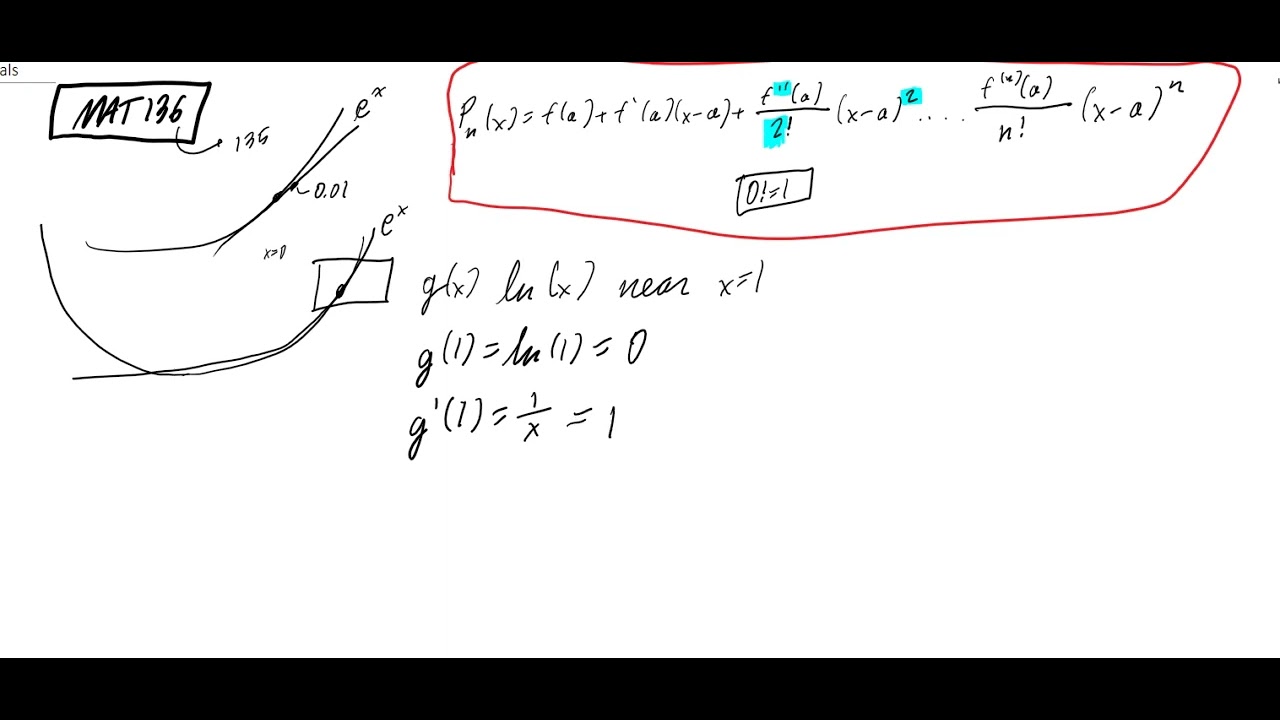 als
MAT 136
135
eˣ
0.01
x=0
eˣ
Pₙ(x) = f(a) + f'(a)(x-a) + f''(a)/2! (x-a)² .... f⁽ⁿ⁾(a)/n! (x-a)ⁿ
0! = 1
g(x) ln(x) near x=1
g(1) = ln(1) = 0
g'(1) = 1/x = 1